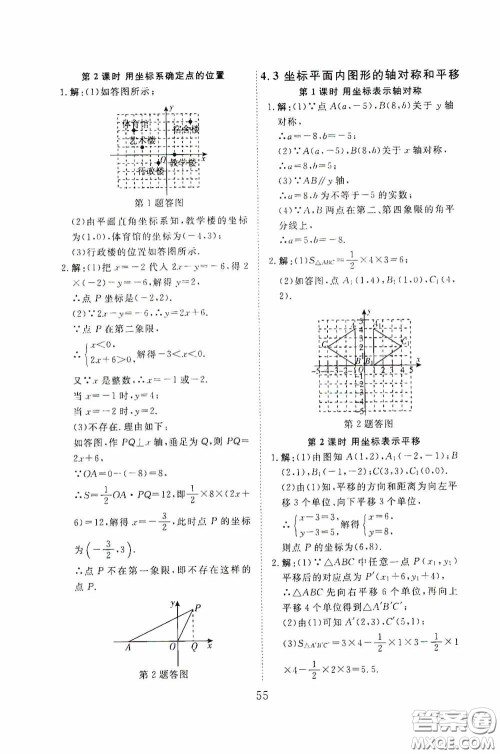 第2课时 用坐标系确定点的位置
1.解:(1)如答图所示:
y
体育馆
宿舍楼
艺术楼
教学楼
行政楼
O
x
第1题答图
(2)由平面直角坐标系知,教学楼的坐标
为(1,0),体育馆的坐标为(-4,3);
(3)行政楼的位置如答图所示.
2.解:(1)把x=-2代入2x-y=-6,得2
×(-2)-y=-6,解得y=2.
∴点P坐标是(-2,2).
(2)∵2x-y=-6,∴y=2x+6.
∵点P在第二象限,
∴{x<0,
2x+6>0, 解得-3<x<0.
又∵x是整数,∴x=-1或-2.
当x=-1时,y=4;
当x=-2时,y=2;
(3)不存在.理由如下:
如答图,作PQ⊥x轴,垂足为Q,则PQ=
2x+6.
∵OA=0-(-8)=8.
∴S=1/2OA·PQ=12,即1/2×8×(2x
+6)=12,解得x=-3/2,此时点P的坐标
为(-3/2,3).
∴点P不在第一象限,即不存在这样的
点P.
y
P
A
O
Q
x
第2题答图
4.3 坐标平面内图形的轴对称和平移
第1课时 用坐标表示轴对称
1.解:(1)∵点A(a,-5),B(8,b)关于y轴
对称,
∴a=-8,b=-5;
(2)∵点A(a,-5),B(8,b)关于x轴对称,
∴a=8,b=5;
(3)∵AB∥y轴,
∴a=8,b为不等于-5的实数;
(4)∵A,B两点在第二、第四象限的角平
分线上.
∴a=5,b=-8.
2.解:(1)S△ABC=1/2×4×3=6;
(2)如答图,点A₁(1,4),B₁(1,0),C₁(4,
2).
第2题答图
第2课时 用坐标表示平移
1.解:(1)由图知A(1,2),A₁(-2,-1);B
(2,1),B₁(-1,-2);C(3,3),C₁(0,0).
(2)由(1)知,平移的方向和距离为向左
平移3个单位、向下平移3个单位,
∴{x-3=3,
y-3=5, 解得{x=6,
y=8,
则点P的坐标为(6,8).
2.解:(1)∵△ABC中任意一点P(x₁,y₁)
平移后的对应点为P′(x₁+6,y₁+4),
∴△ABC先向右平移6个单位,再向上
平移4个单位得到△A′B′C′;
(2)由(1)可知,A′(2,3),B′(1,0),
C′(5,1);
(3)S△A′B′C′=3×4-1/2×1×3-1/2×
1×4-1/2×3×2=5.5.
55
答案圈
MXQE.COM